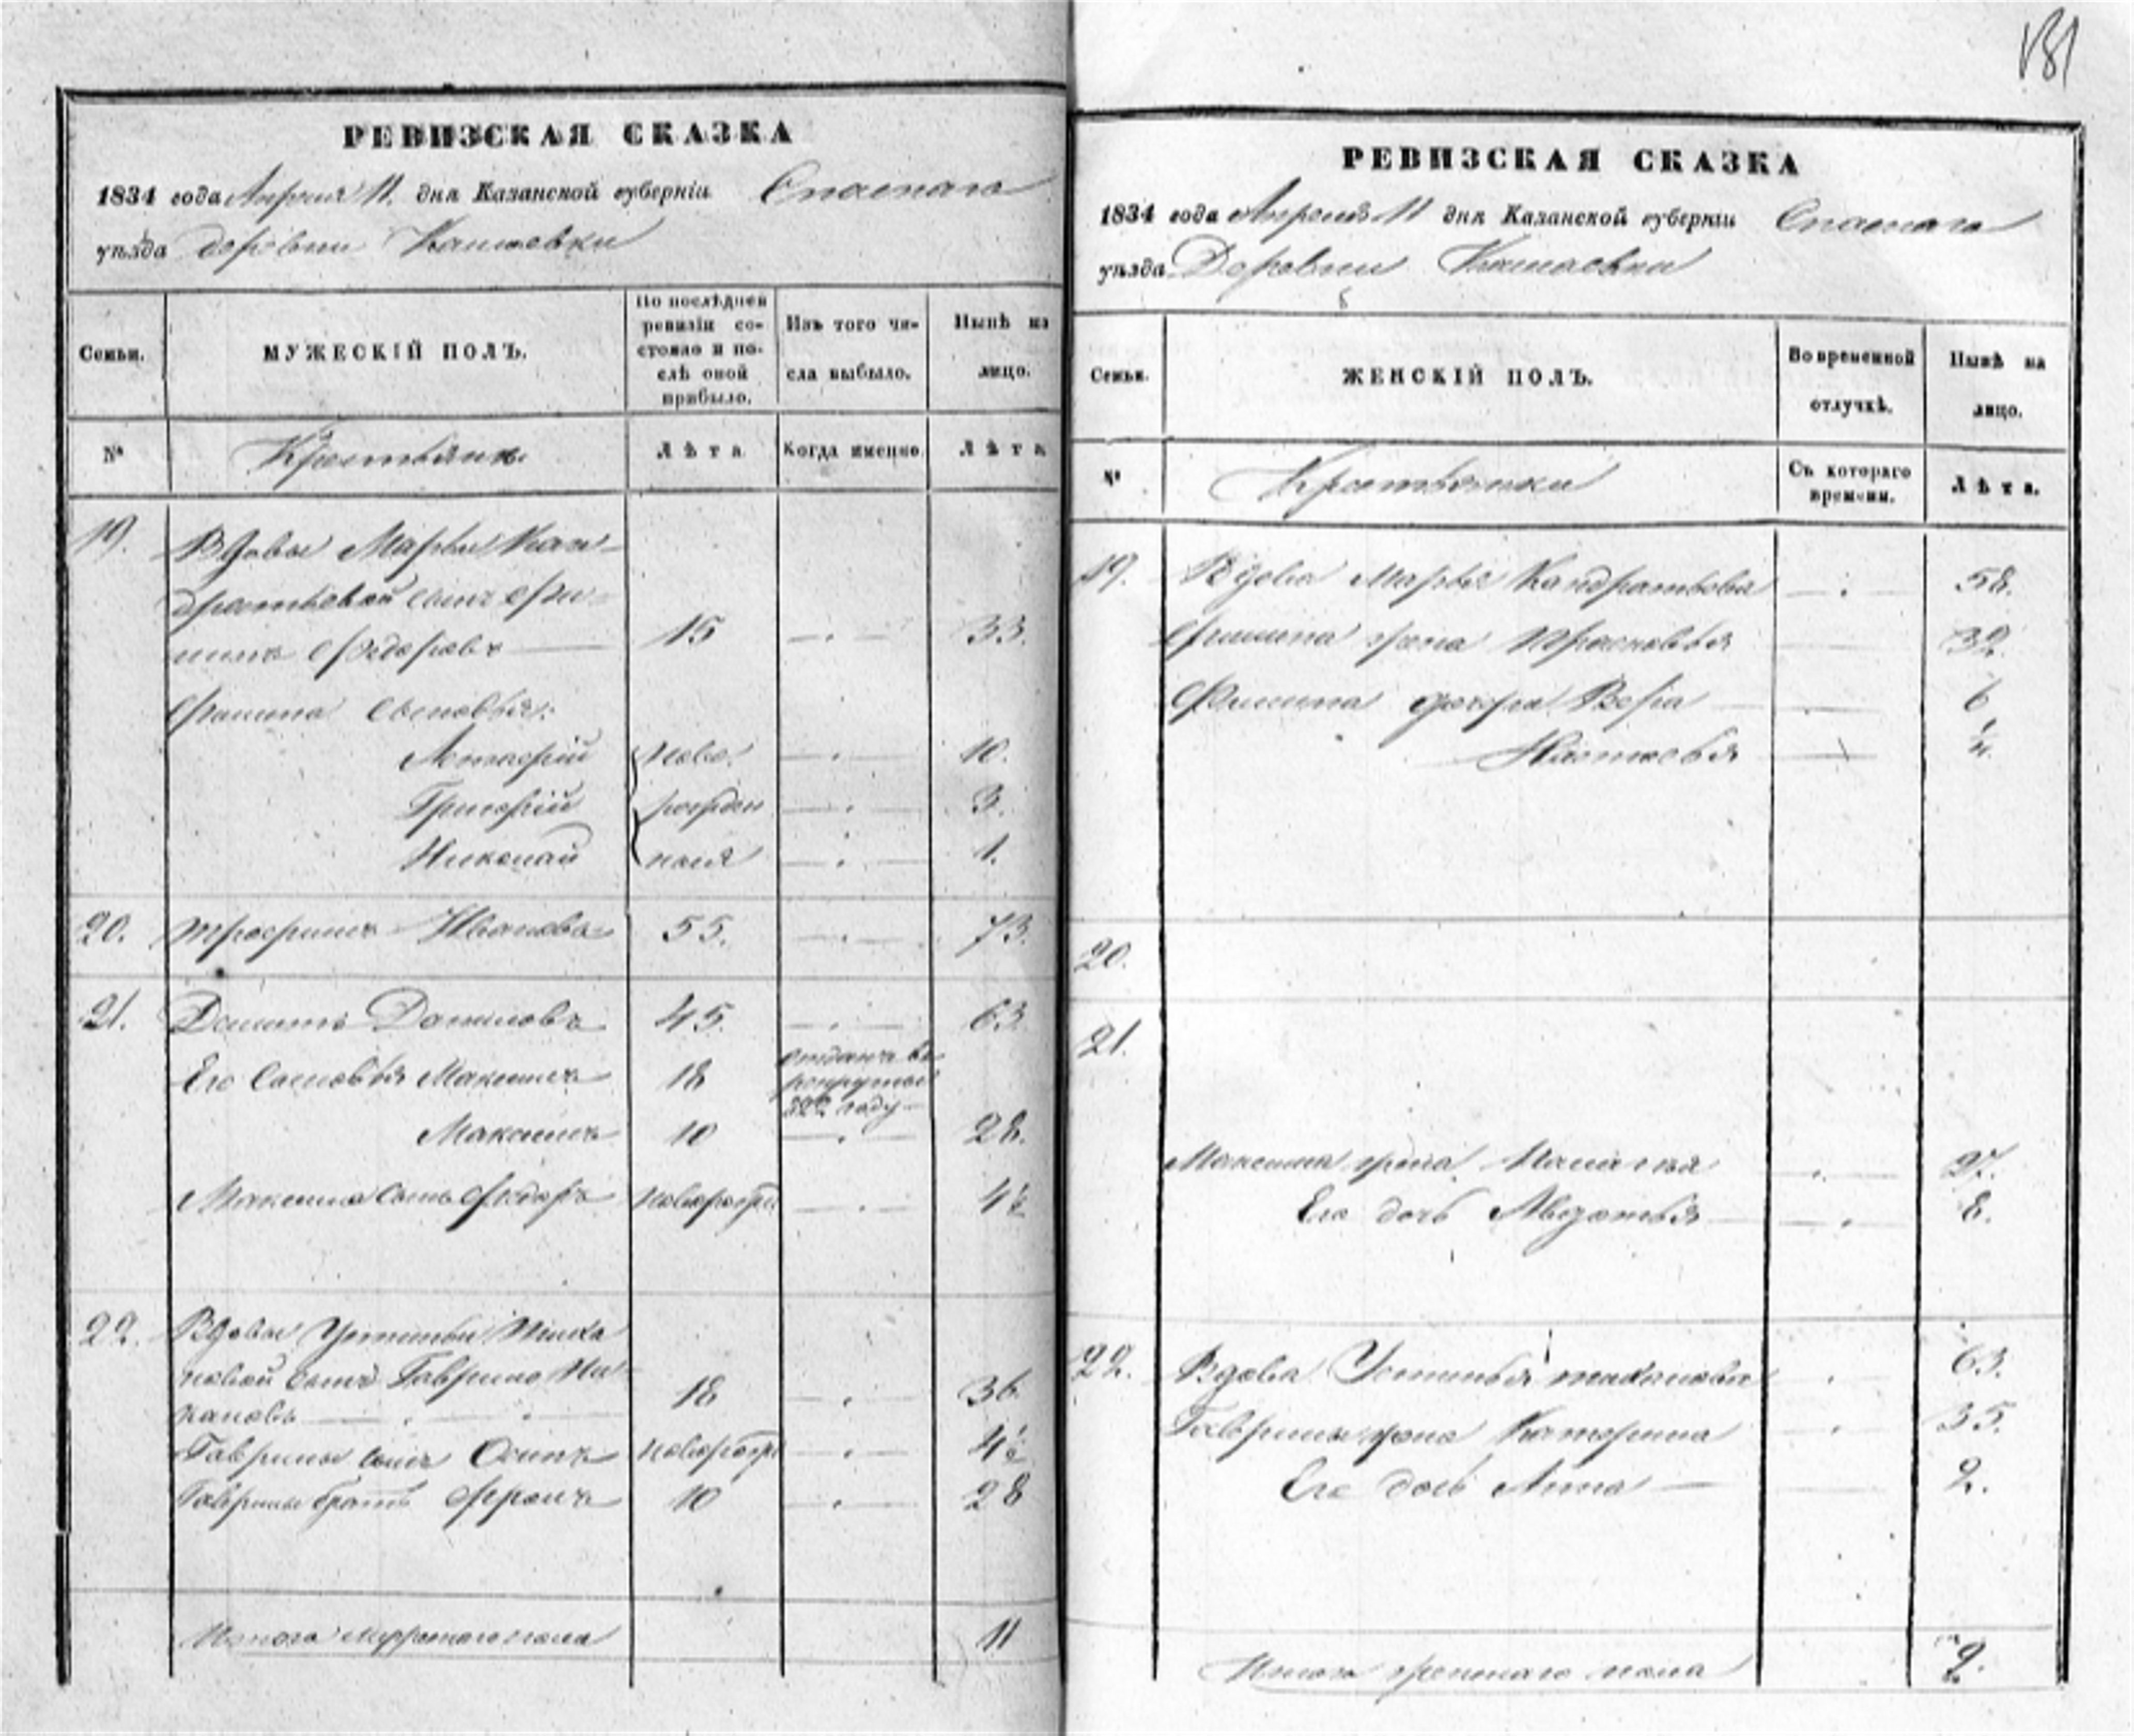 181
РЕВИЗСКАЯ СКАЗКА
1834 года Апреля 11. дня Казанской губерніи Спаскаго
уѣзда деревни
Семьи.
МУЖЕСКІЙ ПОЛЪ.
По послѣдней ревизіи состояло и послѣ оной прибыло.
Изъ того числа выбыло.
Нынѣ на лицо.
№
Крестьяне
Лѣта
Когда именно.
Лѣта
19. Вдовы Марьи Кан-
дратьевой сынъ Фи-
липъ Федоровъ 15 33.
Филипа сыновья:
Астафій ново- 10.
Григорій рожден 3.
Николай ныя 1.
20. Трофимъ Ивановъ 55. 73.
21. Данилов 45. 63.
Его сыновья Максимъ 18 отданъ въ рекруты году
Максимъ 10 28.
Максима сынъ Федоръ новорожд. 4½
22. Вдовы Устиньи
новой сынъ Гаврило Ни-
кановъ 18 36.
Гаврилы сынъ Осипъ новорожд 4½
Гаврилы братъ Ефремъ 10 28
Итого мужескаго пола 11
РЕВИЗСКАЯ СКАЗКА
1834 года Апреля 11 дня Казанской губерніи Спаскаго
уѣзда Деревни
Семьи.
ЖЕНСКІЙ ПОЛЪ.
Во временной отлучкѣ.
Нынѣ на лицо.
№
Крестьянки
Съ котораго времени.
Лѣта.
19. Вдова Марья Кандратьева 58.
Филипа жена Прасковья 32.
Филипа дочери Вера 6
Настасья
20.
21.
Максима жена 27.
Его дочь Авдотья 8.
22. Вдова Устинья 63.
Гаврилы жена Катерина 35.
Его дочь Анна 2.
Итого женскаго пола 9.